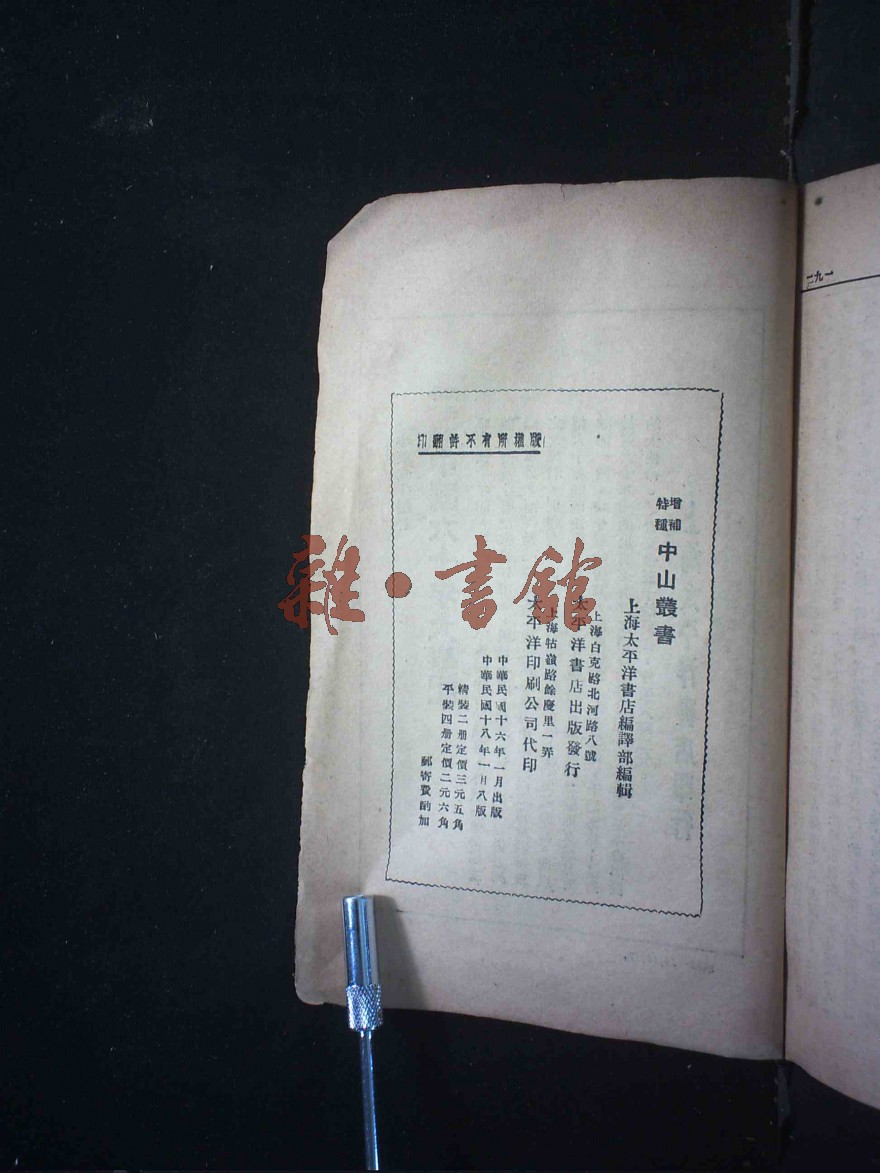 一九二
版權所有不許翻印
增補
特種
中山叢書
上海太平洋書店編譯部編輯
上海白克路北河路八號
太平洋書店出版發行
上海牯嶺路餘慶里一弄
太平洋印刷公司代印
中華民國十六年一月出版
中華民國十八年一月八版
精裝二册定價三元五角
平裝四册定價二元六角
郵寄費酌加
雜·書館